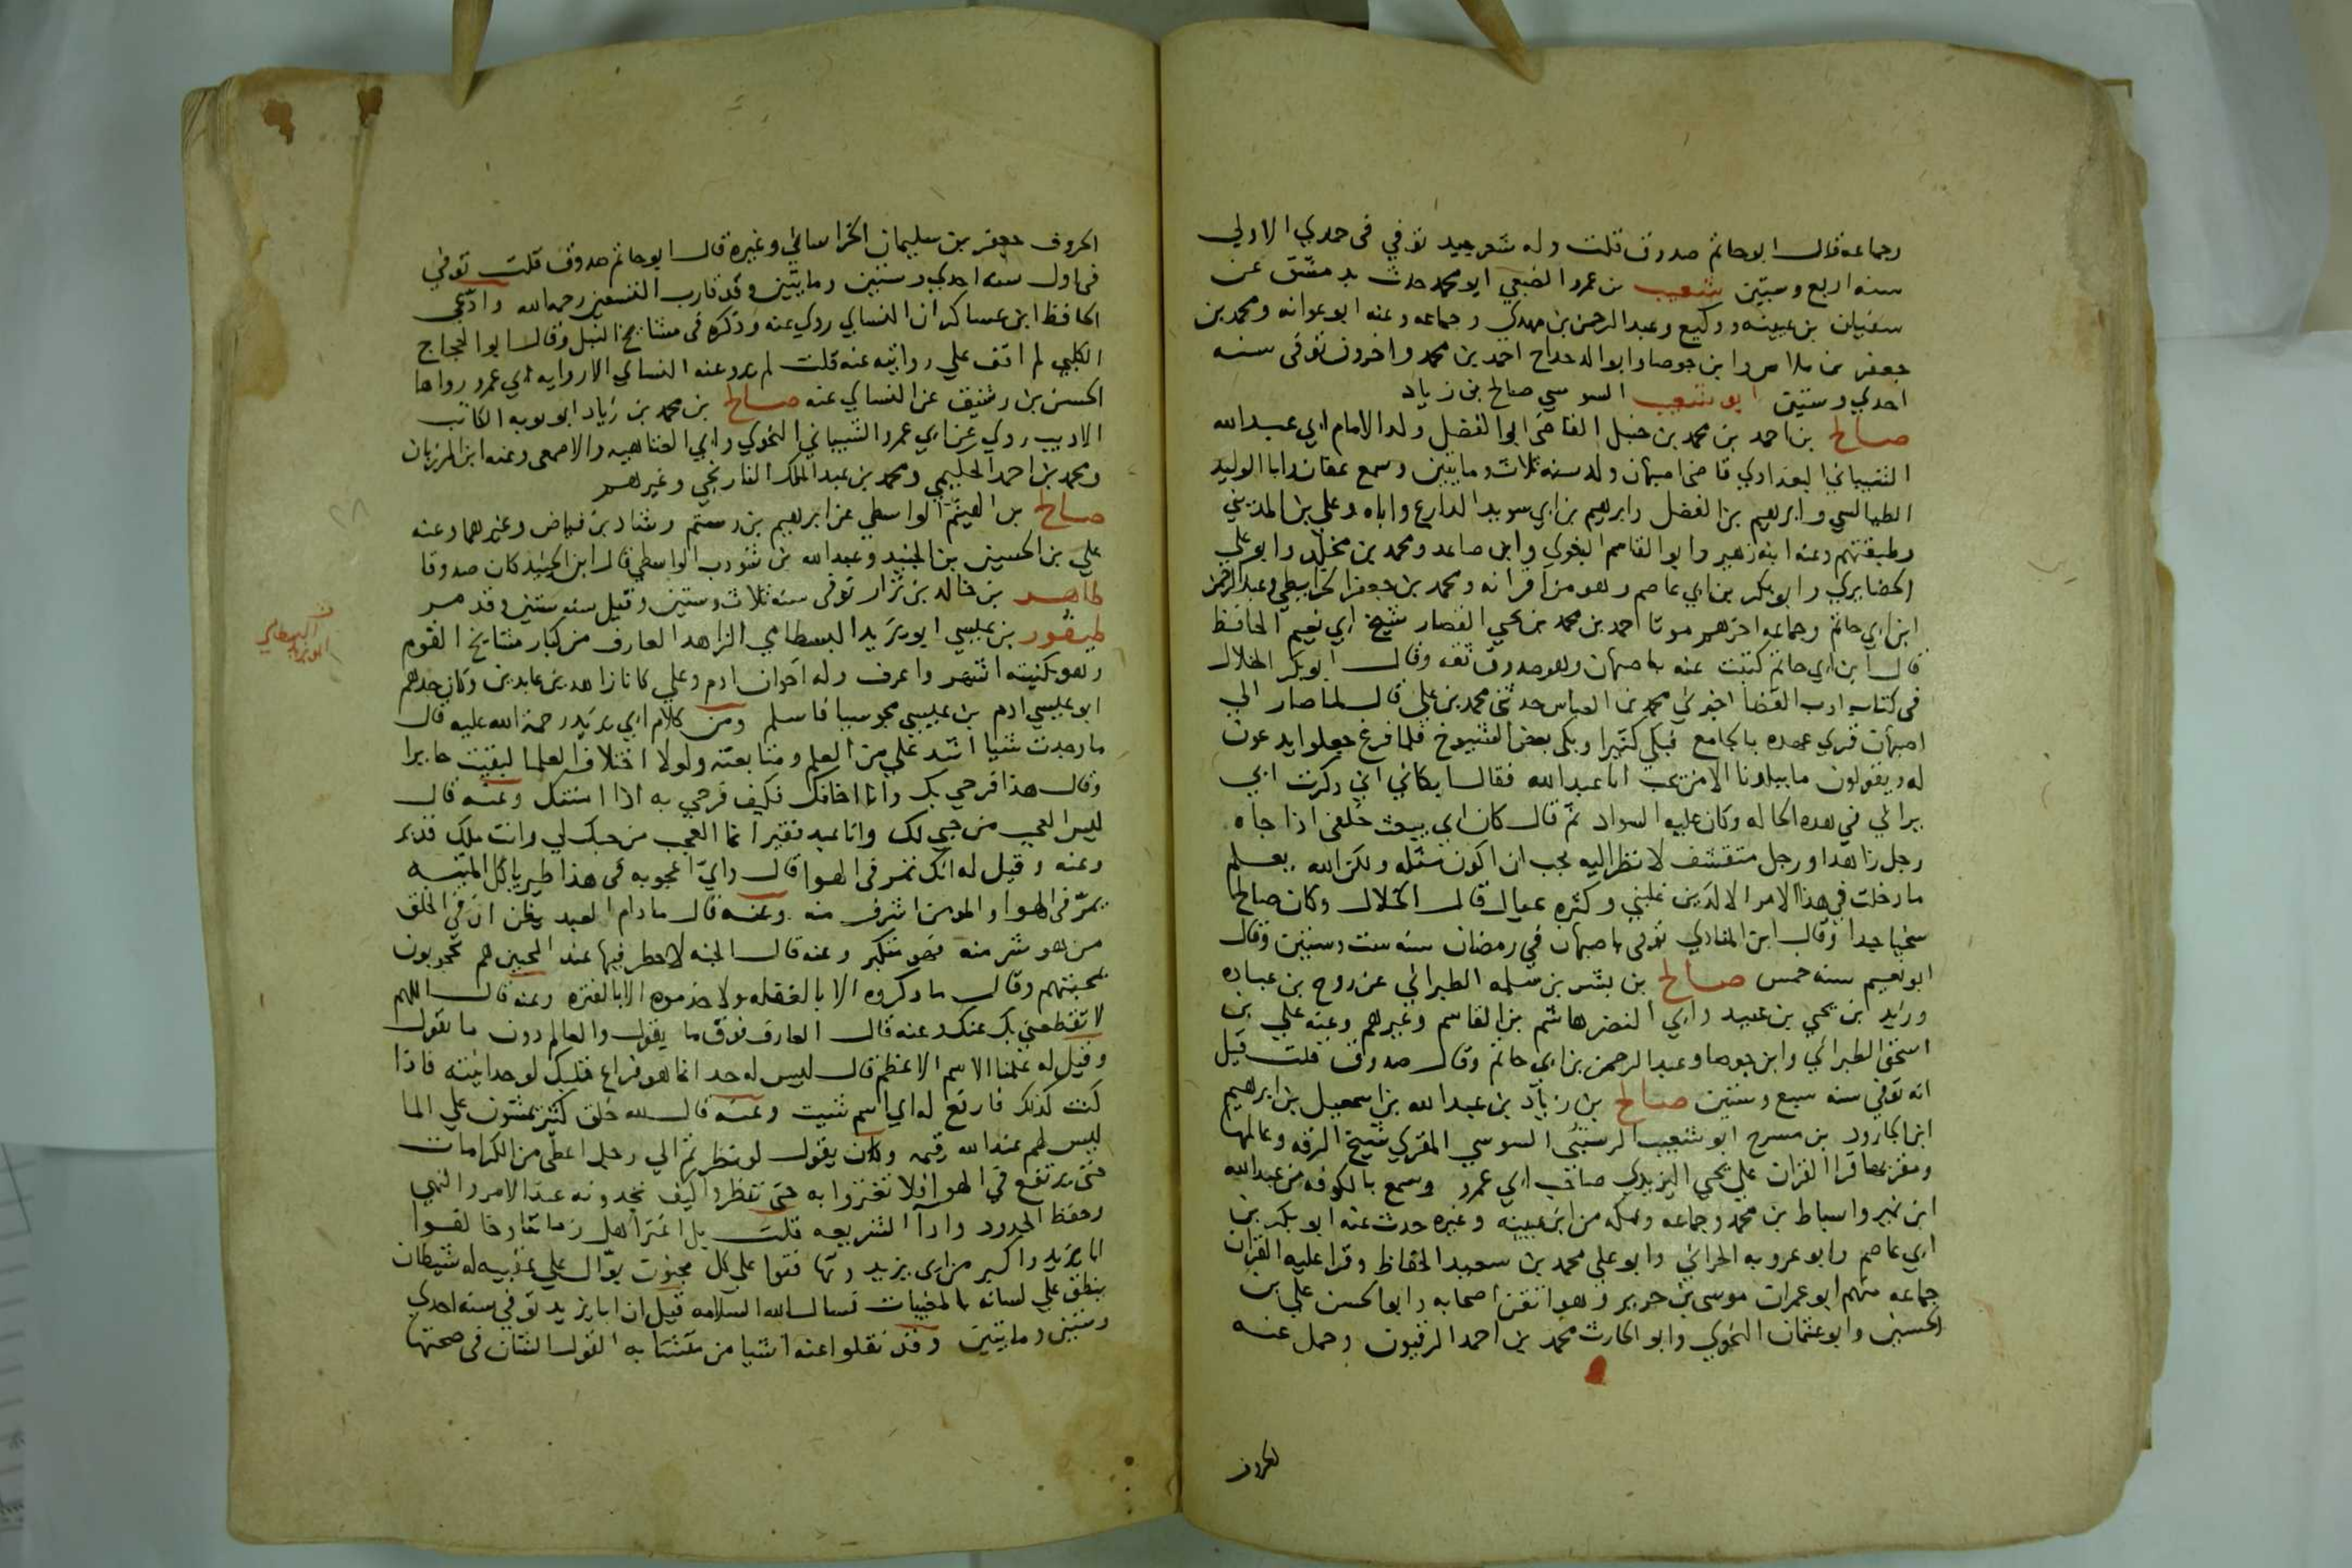 وجماعه قال ابو حاتم صدوق قلت وله شعر جيد توفي في جمدي الاولي
سنه اربع وستين شعيب بن عمرو الضبعي ابو محمد حدث بدمشق عن
سفيان بن عيينه ووكيع وعبد الرحمن بن مهدي وجماعه وعنه ابو عوانه ومحمد بن
جعفر بن ملاس وابن جوصا وابو الدحداح احمد بن محمد واخرون توفي سنه
احدي وستين ابو شعيب السوسي صالح بن زياد
صالح بن احمد بن محمد بن حنبل القاضي ابو الفضل ولد الامام ابي عبد الله
الشيباني البغدادي قاضي اصبهان ولد سنه ثلاث ومايتين وسمع عفان وابا الوليد
الطيالسي وابرهيم بن الفضل وابرهيم بن ابي سويد الدارع واباه وعلي بن المديني
وطبقتهم وعنه ابنه زهير وابو القاسم البغوي وابن صاعد ومحمد بن مخلد وابو علي
الحضايري وابو بكر بن ابي عاصم وهو من اقرانه ومحمد بن جعفر الخرايطي وعبد الرحمن
ابن ابي حاتم وجماعه اخرهم موتا احمد بن محمد بن يحيي القصار شيخ ابي نعيم الحافظ
قال ابن ابي حاتم كتبت عنه باصبهان وهو صدوق ثقه وقال ابو بكر الخلال
في كتاب ادب القضا اخبرني محمد بن العباس حدثني محمد بن علي قال لما صار الي
اصبهان قري عهده بالجامع فبكي كثيرا وبكي بعض الشيوخ فلما فرغ جعلوا يدعون
له ويقولون ما ببلدنا الا من يحب ابا عبد الله فقال ابكاني اني ذكرت ابي
يراني في هذه الحاله وكان عليه السواد ثم قال كان ابي يبعث خلفي اذا جاه
رجل زاهد او رجل متقشف لانظر اليه يحب ان اكون مثله ولكن الله يعلم
ما دخلت في هذا الامر الا لدين غلبني وكثره عيال قال الخلال وكان صالح
سخيا جدا وقال ابن المنادي توفي باصبهان في رمضان سنه ست وستين وقال
ابو نعيم سنه خمس صالح بن بشر بن سلمه الطبراني عن روح بن عباده
وزيد ابن يحيي بن عبيد وابي النضر هاشم بن القاسم وغيرهم وعنه علي بن
اسحق الطبراني وابن جوصا وعبد الرحمن بن ابي حاتم وقال صدوق قلت قيل
انه توفي سنه سبع وستين صالح بن زياد بن عبد الله بن اسمعيل بن ابراهيم
ابن الجارود بن مسرح ابو شعيب الرستبي السوسي المقري شيخ الرقه وعالمها
ومقريها قرا القران علي يحيي اليزيدي صاحب ابي عمرو وسمع بالكوفه من عبد الله
ابن نمير واسباط بن محمد وجماعه وبمكه من ابن عيينه وغيره حدث عنه ابو بكر بن
ابي عاصم وابو عروبه الحراني وابو علي محمد بن سعيد الحفاظ وقرا عليه القران
جماعه منهم ابو عمران موسي بن جرير وهو اتقن اصحابه وابو الحسن علي بن
الحسين وابو عثمان النحوي وابو الحارث محمد بن احمد الرقيون وحمل عنه
الحروف
الحروف جعفر بن سليمان الخراساني وغيره قال ابو حاتم صدوق قلت توفي
في اول سنه احدي وستين ومايتين وقد قارب التسعين رحمه الله وادعي
الحافظ ابن عساكر ان النسائي روي عنه وذكره في مشايخ النبل وقال ابو الحجاج
الكلبي لم اقف علي روايته عنه قلت لم يرو عنه النساي الا روايه ابي عمرو رواها
الحسن بن رشيق عن النسائي عنه صالح بن محمد بن زياد ابو توبه الكاتب
الاديب روي عن ابي عمرو الشيباني النحوي وابي العتاهيه والاصمعي وعنه ابن المرزبان
ومحمد بن احمد الحليمي ومحمد بن عبد الملك التاريخي وغيرهم
صالح بن الهيثم الواسطي عن ابرهيم بن رستم وشاذ بن فياض وغيرهما وعنه
علي بن الحسين بن الجنيد وعبد الله بن شوذب الواسطي قال ابن الجنيد كان صدوقا
طاهر بن خالد بن نزار توفي سنه ثلاث وستين وقيل سنه ستين وقد مر
طيفور بن عيسي ابو يزيد البسطامي الزاهد العارف من كبار مشايخ القوم
وهو بكنيته اشهر واعرف وله اخوان ادم وعلي كانا زاهدين عابدين وكان جدهم
ابو عيسي ادم بن عيسي مجوسيا فاسلم ومن كلام ابي يزيد رحمة الله عليه قال
ما وجدت شيا اشد علي من العلم ومتابعته ولولا اختلاف العلما لبقيت حايرا
وقال هذا فرحي بك وانا اخافك فكيف فرحي به اذا امنتك وعنه قال
ليس العجب من حبي لك وانا عبد فقير انما العجب من حبك لي وانت ملك قدير
وعنه وقيل له انك تمر في الهوا قال واي اعجوبه في هذا طير ياكل الميته
يمر في الهوا والمومن اشرف منه وعنه قال ما دام العبد يظن ان في الخلق
من هو شر منه فهو متكبر وعنه قال الجنه لا خطر فيها عند المحبين هم محجوبون
بمحبتهم وقال ما ذكروه الا بالغفله ولا خدموه الا بالفتره وعنه قال اللهم
لا تقطعني بك عنك وعنه قال العارف فوق ما يقول والعالم دون ما يقول
وقيل له علمنا الاسم الاعظم قال ليس له حد انما هو فراغ قلبك لوحدانيته فاذا
كنت كذلك فارفع له اي اسم شيت وعنه قال لله خلق كثير يمشون علي الما
ليس لهم عند الله قيمه وكان يقول لو نظرتم الي رجل اعطي من الكرامات
حتي يرتفع في الهوا فلا تغتروا به حتي تنظروا كيف تجدونه عند الامر والنهي
وحفظ الحدود وادآ الشريعه قلت بل اغتر اهل زماننا وخالفوا
ابا يزيد واكبر من ابي يزيد وتهافتوا علي كل مجنون بوال علي عقبيه له شيطان
ينطق علي لسانه بالمغيبات نسال الله السلامه قيل ان ابا يزيد توفي سنه احدي
وستين ومايتين وقد نقلوا عنه اشيا من متشابه القول الشان في صحتها
ابو يزيد
البسطامي